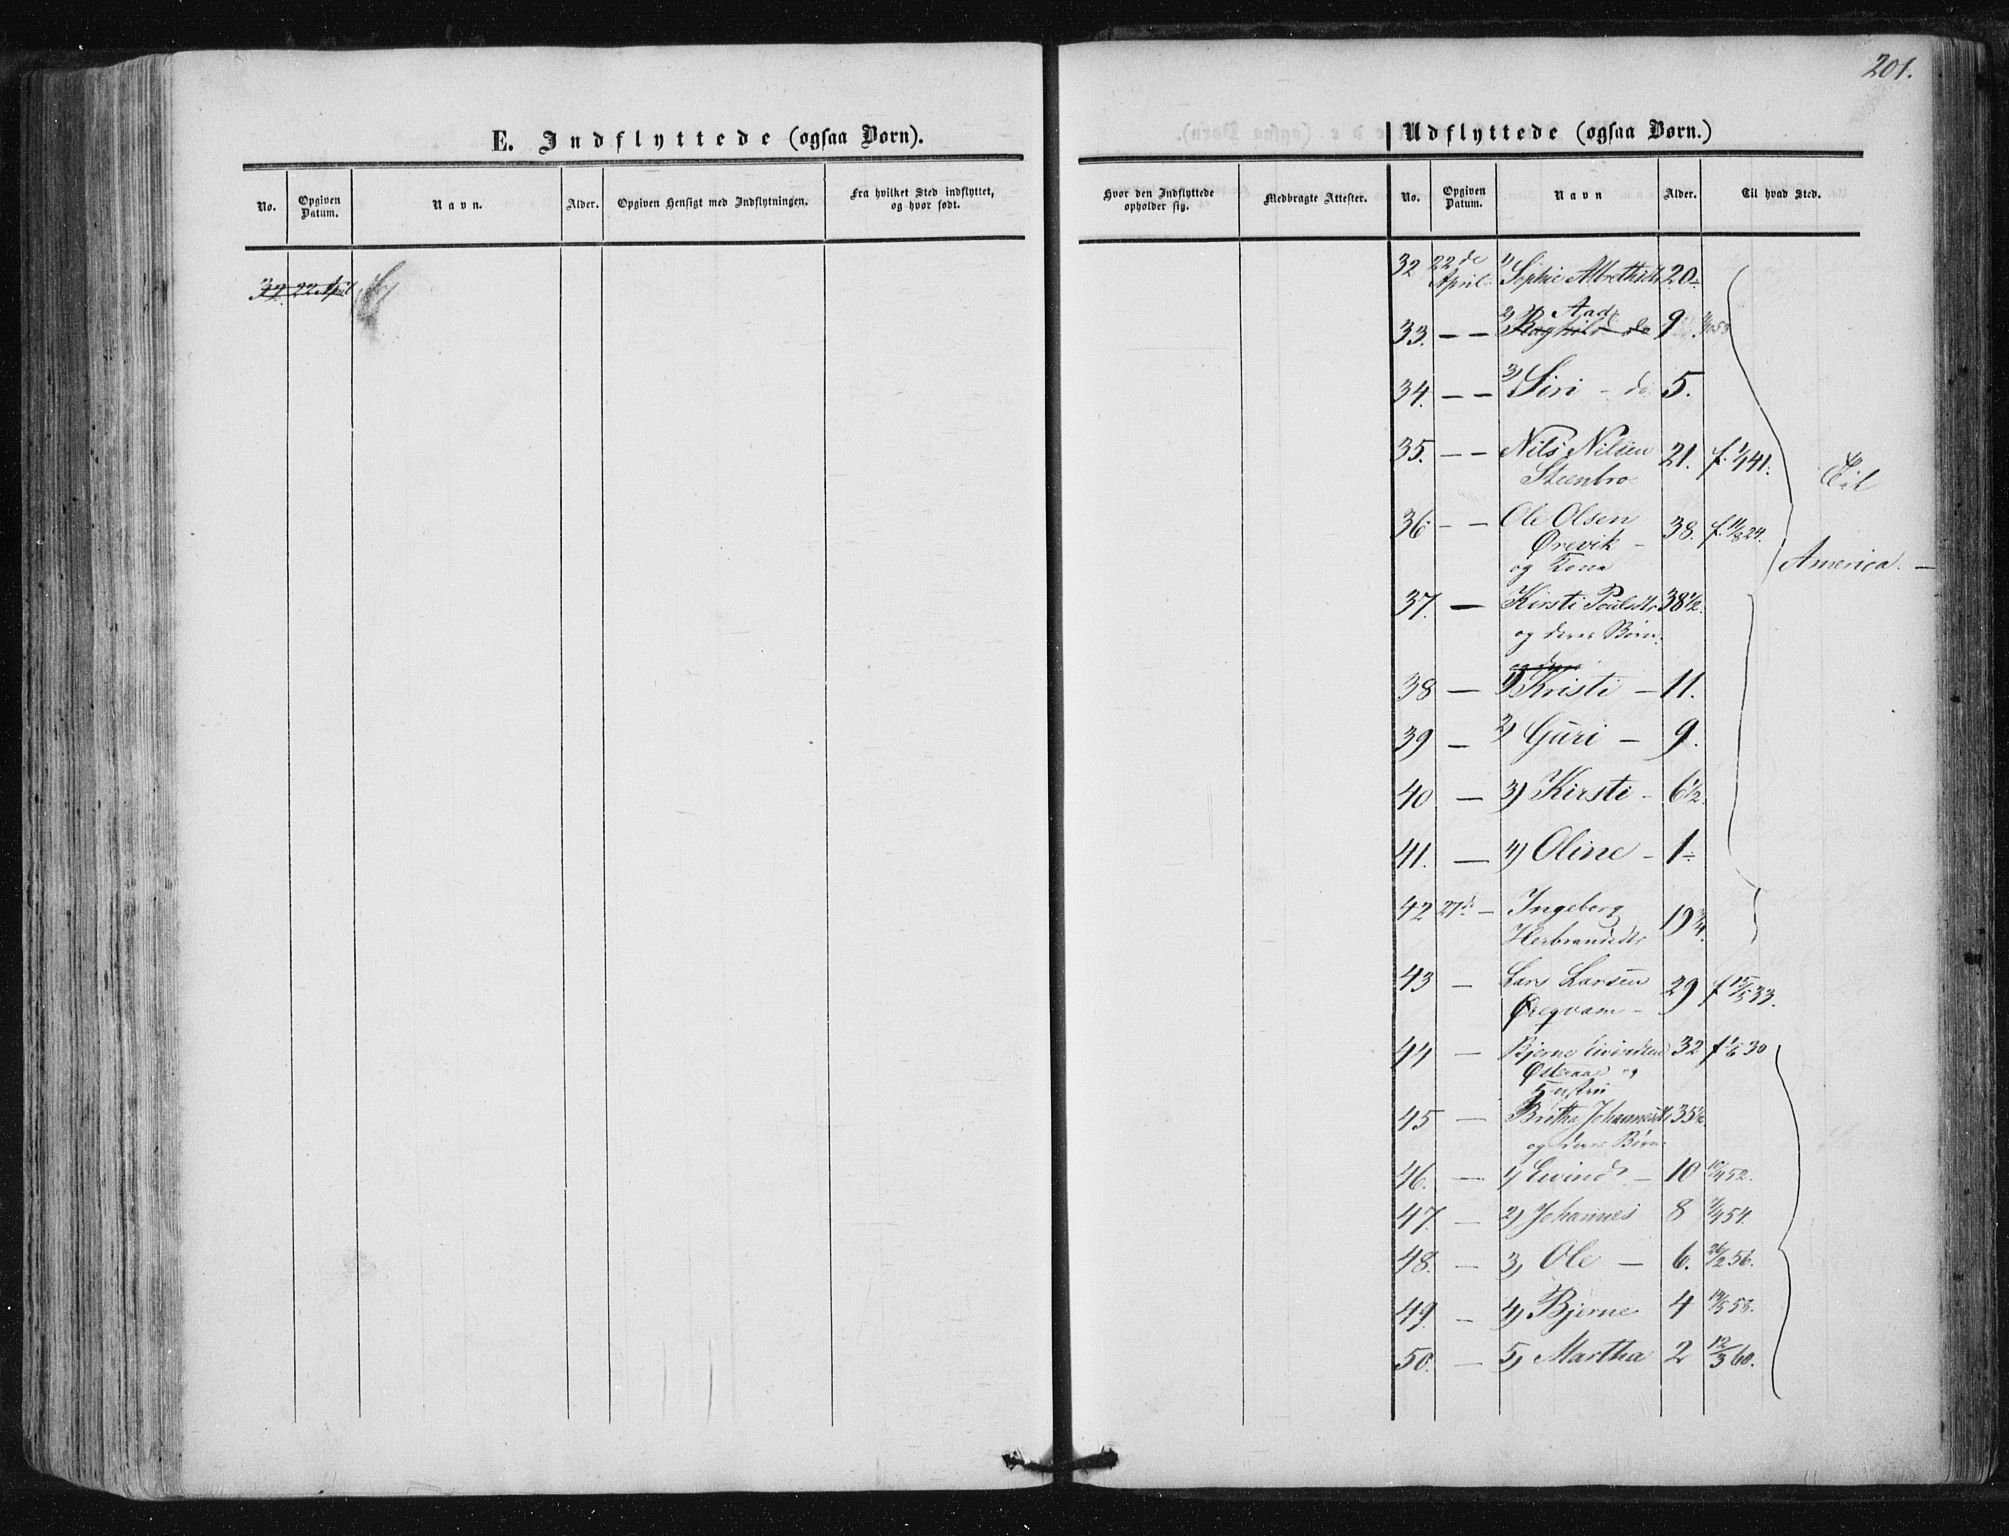 201.
E. Indflyttede (ogsaa Børn).
No. Opgiven Datum. Navn. Alder. Opgiven Hensigt med Indflytningen. Fra hvilket Sted indflyttet, og hvor født.
32. 22 April
Udflyttede (ogsaa Børn.)
Hvor den Indflyttede opholder sig. Medbragte Attester. No. Opgiven Datum. Navn Alder. Til hvad Sted.
32 22de April 1) Sophie Albrethsdtr 20
33. — — 2) Aad. Raghild do 9
34. — — 3) Siri - do 5.
35. — — Nils Nilsen 21. f. 1/1 41.
Steenbro.
36. — — Ole Olsen 38. f. 11/8 24.
Ørevik —
og Kona
37. — Kirsti Paulsdtr 38½
og deres Børn.
38 — 1) Kristi — 11.
39 — 2) Guri — 9.
40 — 3) Kirsti — 6½
41. — 4) Oline — 1
42 27d — Ingeborg 19¾
Herbrandsdtr
43 — Lars Larsen 29 f 15/5 33.
Øregvam —
44 — Bjerne Eivindsen 32 f 1/6 30
og
Hustru
45 — Britha Johannesdtr 35½
og deres Børn
46. — 1) Eivind — 10 10/4 52.
47. — 2) Johannes 8 54.
48. — 3) Ole — 6. 26/2 56.
49. — 4) Bjerne 4 14/5 58.
50. — 5) Martha 2 12/3 60.
Til
America. —